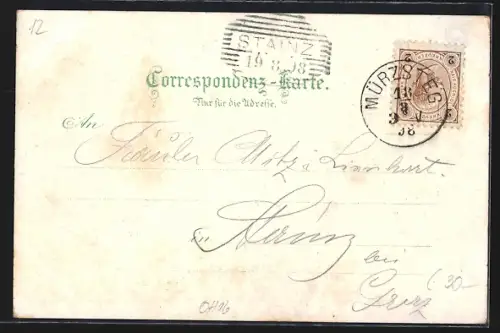 12
STAINZ
19.8.98
2 2
MÜRZSTEG
18
8
98
Correspondenz-Karte.
Nur für die Adresse.
An
Fräuler Motz u Lienhart.
in Stainz
bei
Graz
(30-
OH96